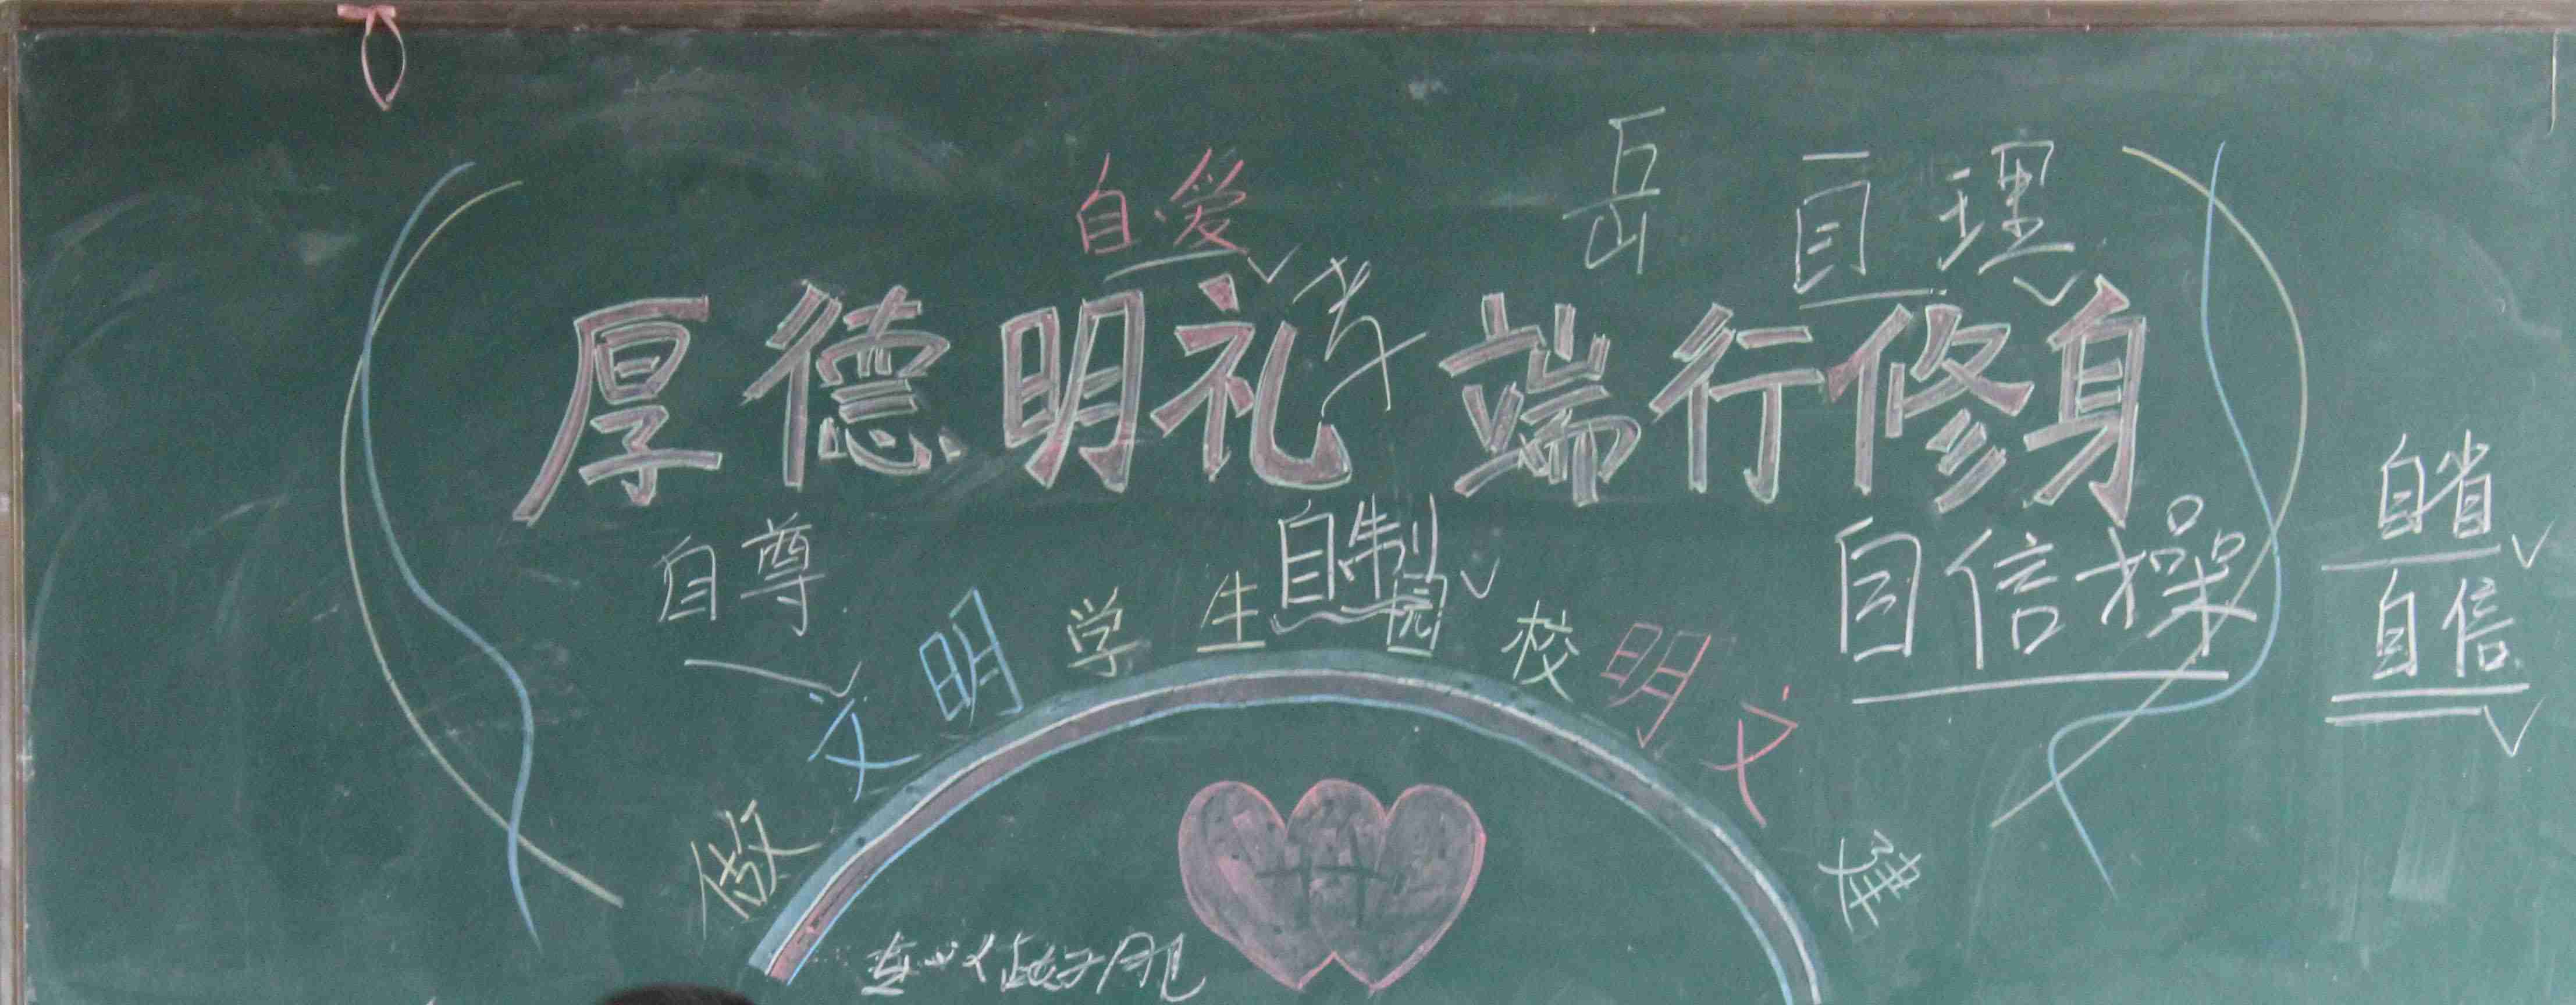 自爱
岳
自理
厚德明礼 端行修身
自省
自尊
自制
自信操
自信
做文明学生 建文明校园